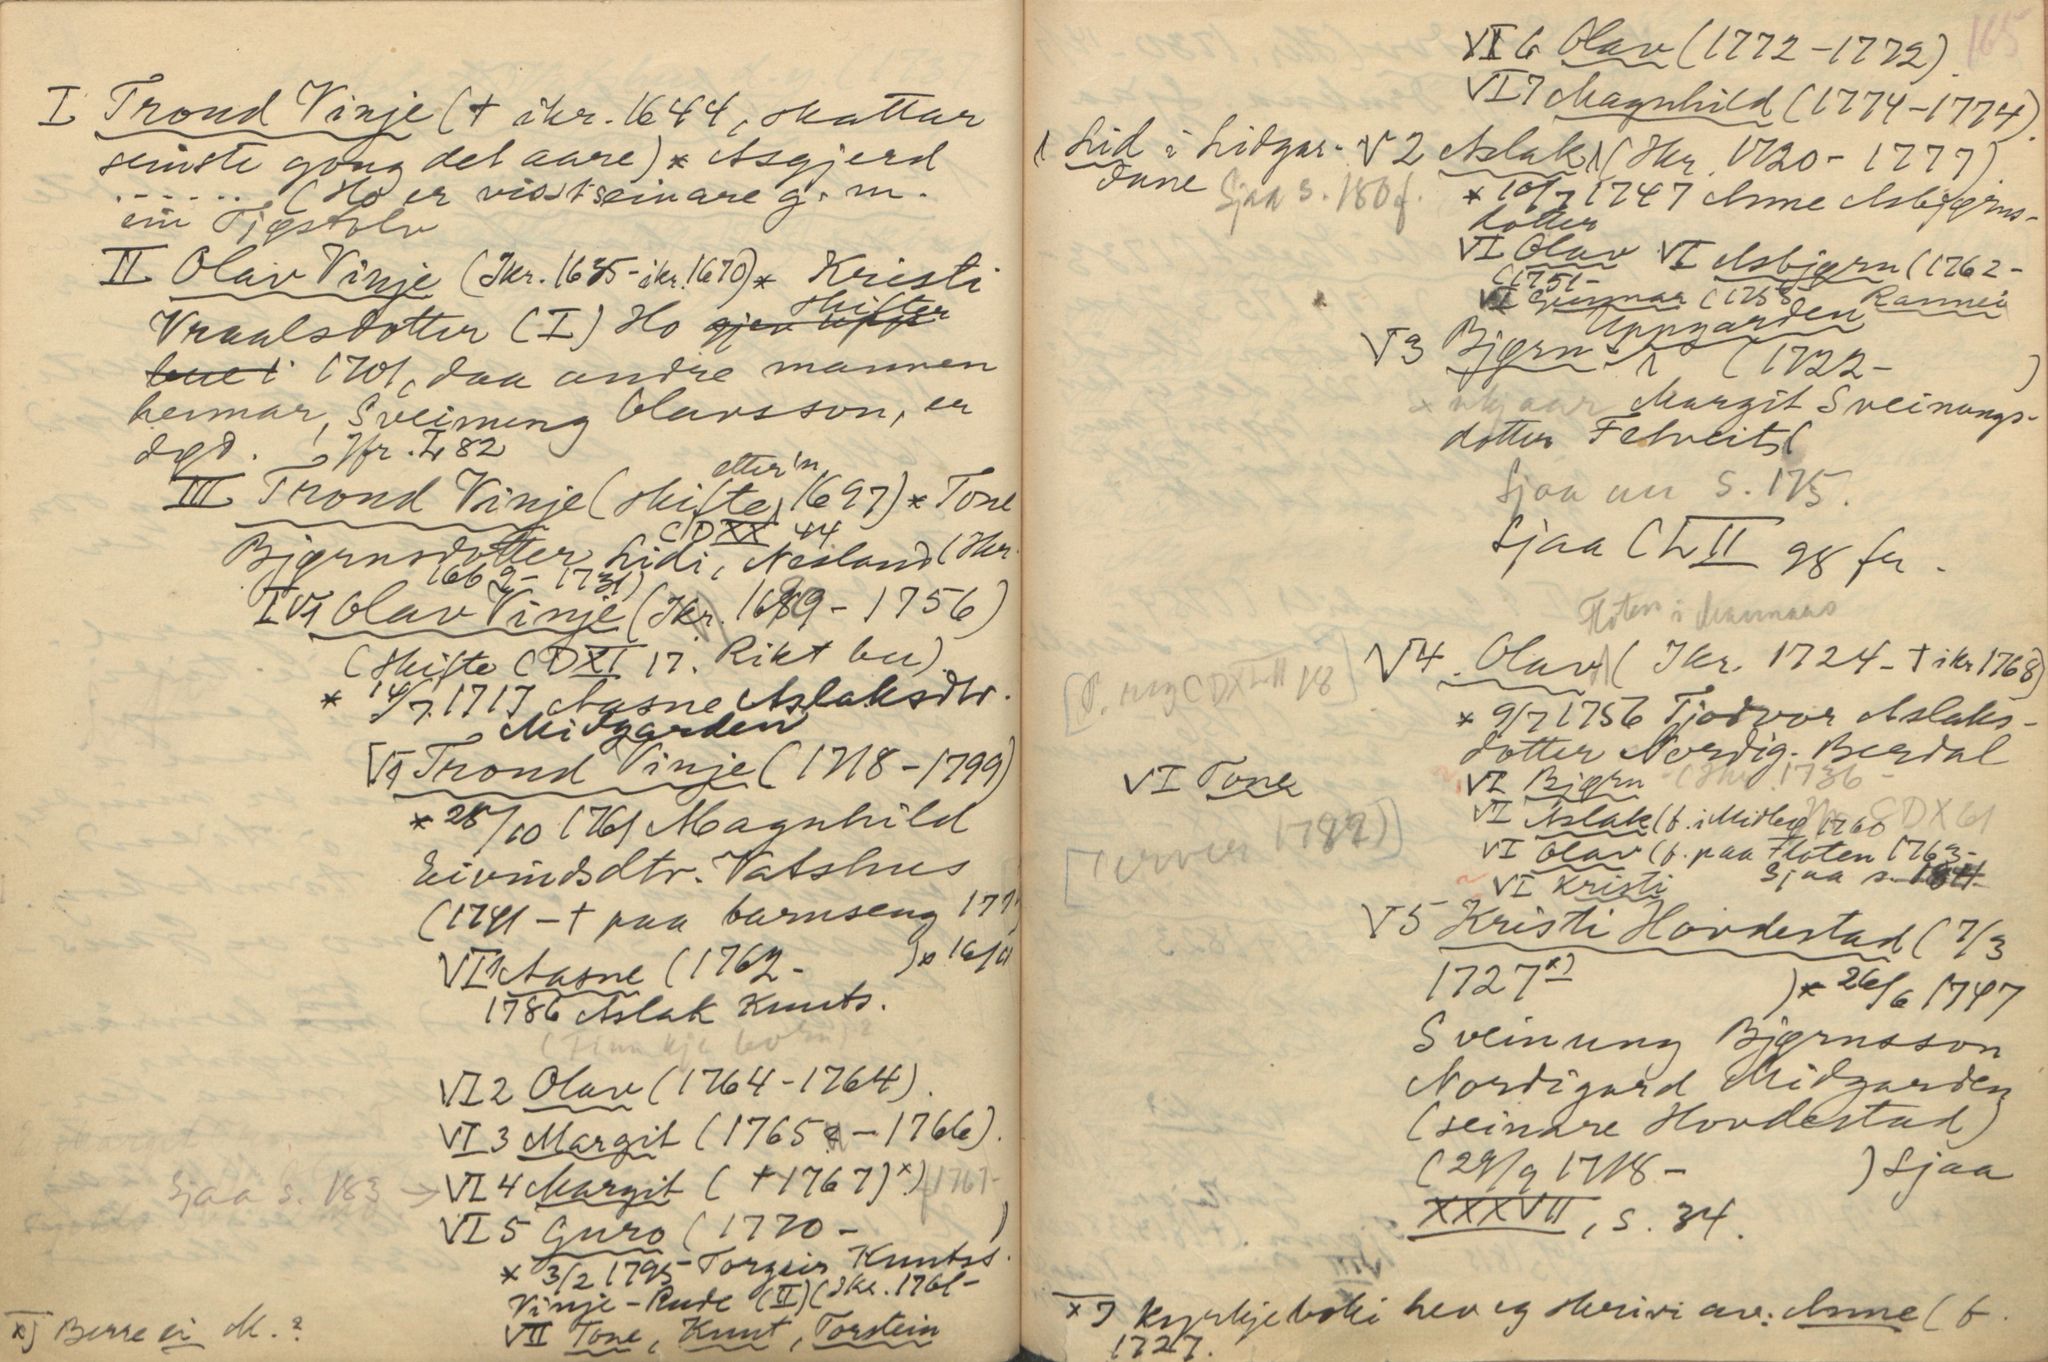 I Trond Vinje († ikr. 1644, skattar
seinste gong det aare) * Asgjerd
...... (Ho er visst seinare g. m.
ein Tjøstolv
II Olav Vinje (Ikr. 1635 - ikr. 1670) * Kristi
Vraalsdotter (I) Ho skifter
1701, daa andre mannen
hennar, Sveinung Olavsson, er
døд. Jfr. I, 82
III Trond Vinje (skifte etter 'n 1697) * Tone
CDXX 44
Bjørnsdotter Lidi, Nesland (Ikr.
1662 - 1731)
IV1 Olav Vinje (Ikr. 1689 - 1756)
(Skifte CDXI 17. Rikt bu).
* 14/7 1717 Aasne Aslaksdtr.
Midgarden
V1 Trond Vinje (1718 - 1799)
* 28/10 1761 Magnhild
Eivindsdtr. Vatshus
(1741 - † paa barnseng 177
VI1 Aasne (1762 - ) * 16/
1786 Aslak Knuts.
VI 2 Olav (1764 - 1764).
VI 3 Margit (1765 - 1766).
Sjaa s. 183 → VI 4 Margit († 1767) x) 1767-
VI 5 Guro (1770 - )
* 3/2 1795 Torgeir Knutss.
Vinje - Rude (II) (Ikr. 1761 -
VII Tone, Knut, Torstein
x) Berre ei M.?
165
VI 6 Olav (1772 - 1772).
VI 7 Magnhild (1774 - 1774).
Lid i Lidgar-
dane Sjaa s. 180 f.
V 2 Aslak (Ikr. 1720 - 1777).
* 10/7 1747 Anne Asbjørns-
dotter
VI Olav VI Asbjørn (1762 -
(1751 -
VI Gunnar (1758 Rannei
Uppgarden
V3 Bjørn (1722 - )
Margit Sveinungs-
dotter Felveit
Sjaa s. 175.
Sjaa CLII 98 fr.
Floten i
V4. Olav (Ikr. 1724 - † ikr 1768)
* 9/7 1756 Tjodvor Aslaks-
dotter Nordig. Berdal
VI Tone
VI Bjørn (Ikr. 1736 -
VI Aslak (f. i Midberg 1760
VI Olav (f. paa Floten 1763 -
Sjaa s. 184
VI Kristi
V5 Kristi Hovdestad (7/3
1727 x) ) * 26/6 1747
Sveinung Bjørnsson
Nordigard Midgarden
(seinare Hovdestad)
(29/9 1718 - ) Sjaa
XXXVII, s. 34.
x) Kyrkjeboki hev eg skrivi av: Anne (f.
1727.